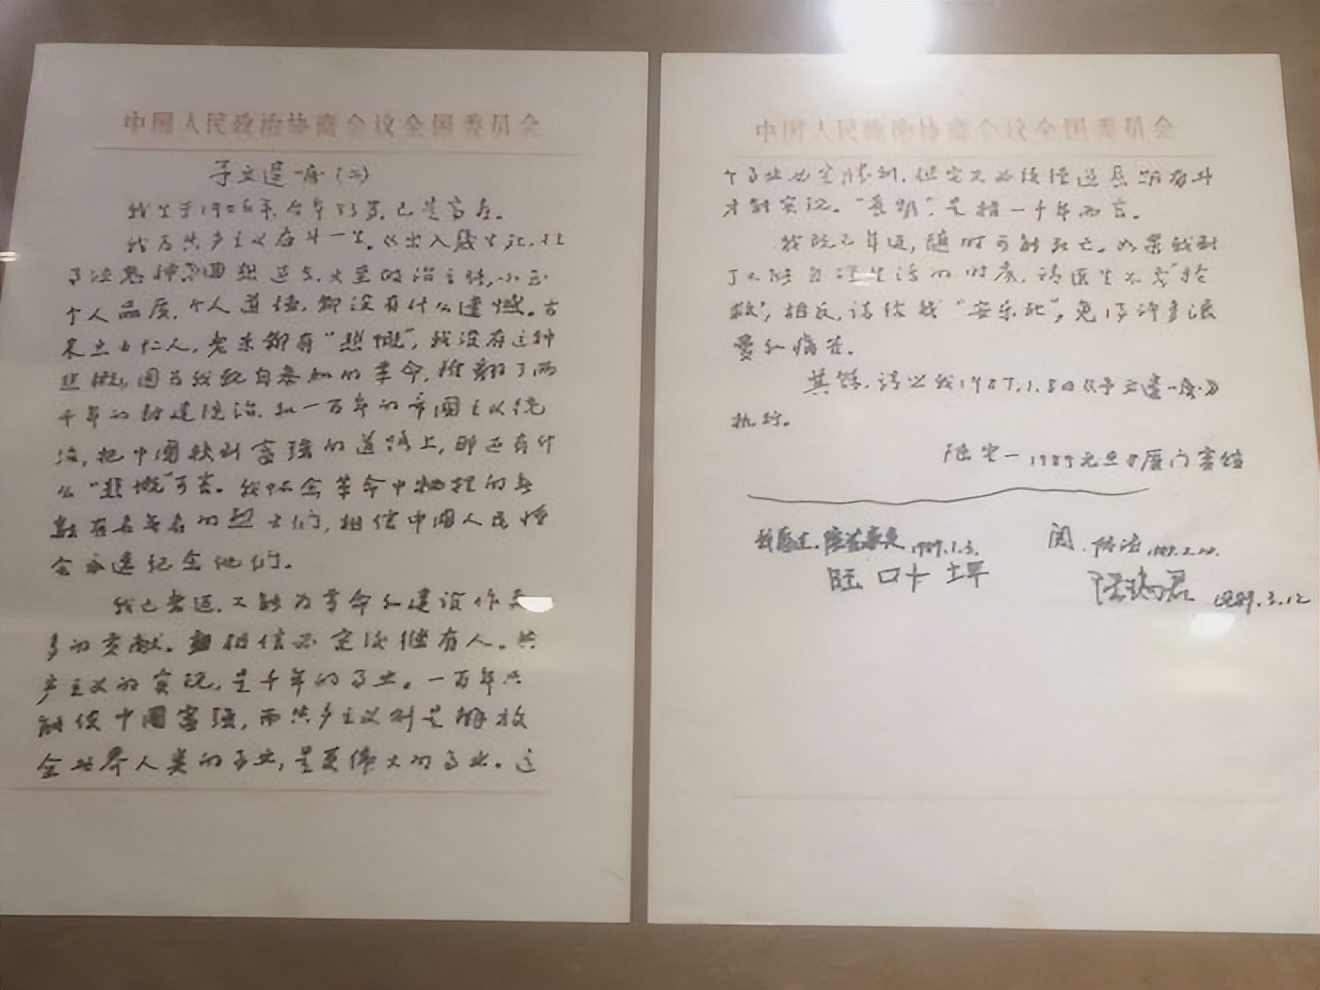 中国人民政治协商会议全国委员会
予立遗嘱(二)
我生于1906年,今年83岁,已是高寿。
我为共产主义奋斗一生,
个人品质,个人道德,都没有什么遗憾。古
来志士仁人,老来都有"悲慨",我没有这种
悲慨,因为我亲自参加的革命,推翻了两
千年的封建统治,和一百年的帝国主义统
治,把中国放到富强的道路上,那还有什
么"悲慨"可言。我怀念革命中牺牲的无
数有名无名的烈士们,相信中国人民将
会永远纪念他们。
我已老迈,不能为革命和建设作更
多的贡献。但相信必定后继有人。共
产主义的实现,是千年的事业。一百年只
能使中国富强,而共产主义则是解放
全世界人类的事业,是更伟大的事业。这
中国人民政治协商会议全国委员会
个事业必定胜利,但定又必须经过长期奋斗
才能实现。"长期",是指一千年而言。
我既已年迈,随时可能死亡。如果我到
了不能自理生活的时候,请医生不要"抢
救",相反,请给我"安乐死",免得许多浪
费和痛苦。
其余,请以我1987.1.8日《予立遗嘱》
执行。
陆定一 1989元旦于厦门宾馆
1989.1.3.
阅. 1989.2.
1989.3.12